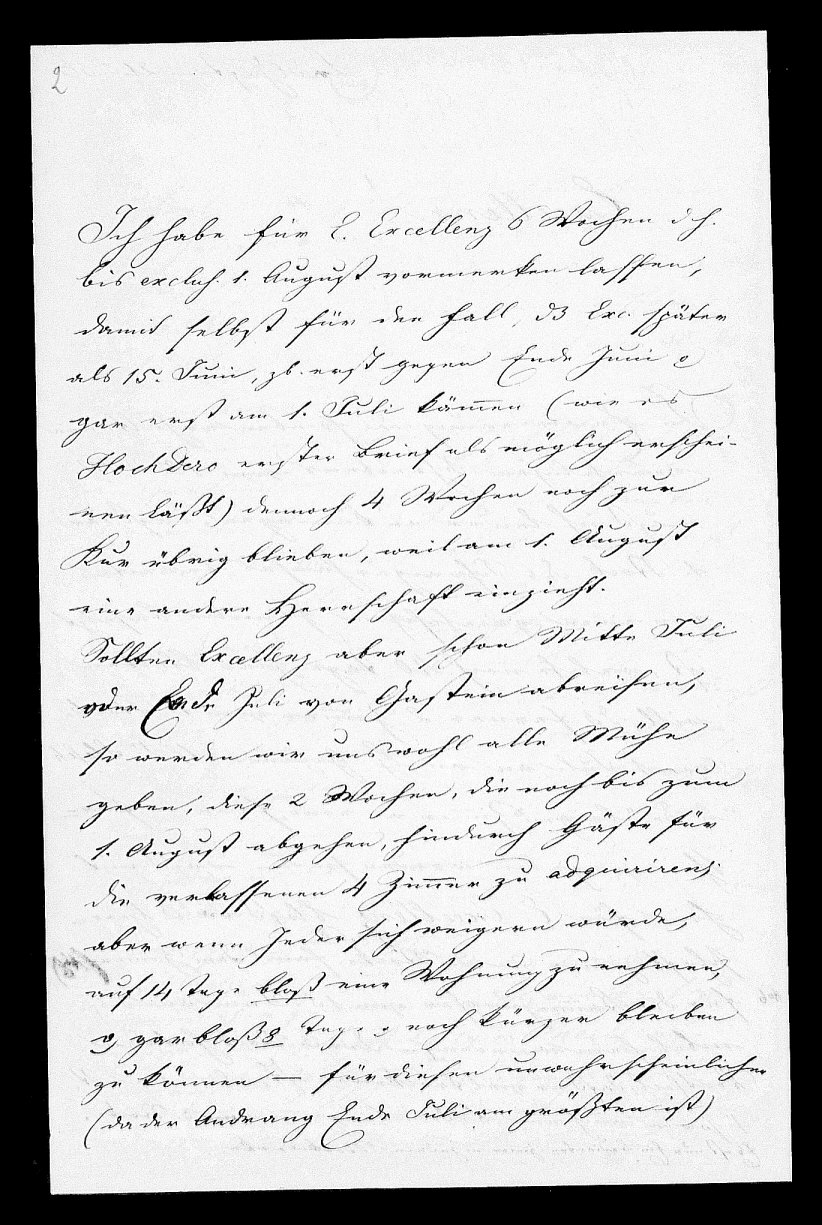 2
Ich habe für E. Excellenz 6 Wochen d. h.
bis exclus. 1. August vormerken lassen,
damit selbst für den Fall, dß Exc. später
als 15. Juni, zb. erst gegen Ende Juni o
gar erst am 1. Juli kämen (wie es
HochDero erster Brief als möglich erschei-
nen läßt) dennoch 4 Wochen noch zur
Kur übrig blieben, weil am 1. August
eine andere Herrschaft einzieht.
Sollten Excellenz aber schon Mitte Juli
oder Ende Juli von Gastein abreisen,
so werden wir uns wohl alle Mühe
geben, diese 2 Wochen, die noch bis zum
1. August abgehen, hindurch Gäste für
die verlassenen 4 Zimmer zu adquiriren;
aber wenn Jeder sich weigern würde,
auf 14 Tage bloß eine Wohnung zu nehmen,
o gar bloß 8 Tage o noch kürzer bleiben
zu können — für diesen unwahrscheinlichen
(da der Andrang Ende Juli am größten ist)